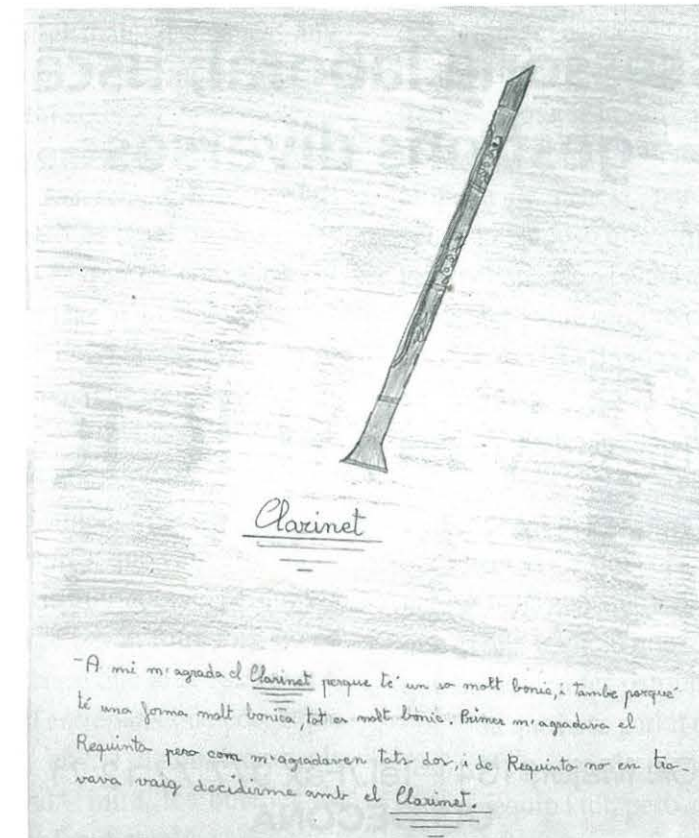 Clarinet
-A mi m'agrada el Clarinet perque té un so molt bonic, i tambe perquè
té una forma molt bonica, tot es molt bonic. Primer m'agradava el
Requinto pero com m'agradaven tots dos, i de Requinto no en tro-
vava vaig decidirme amb el Clarinet.